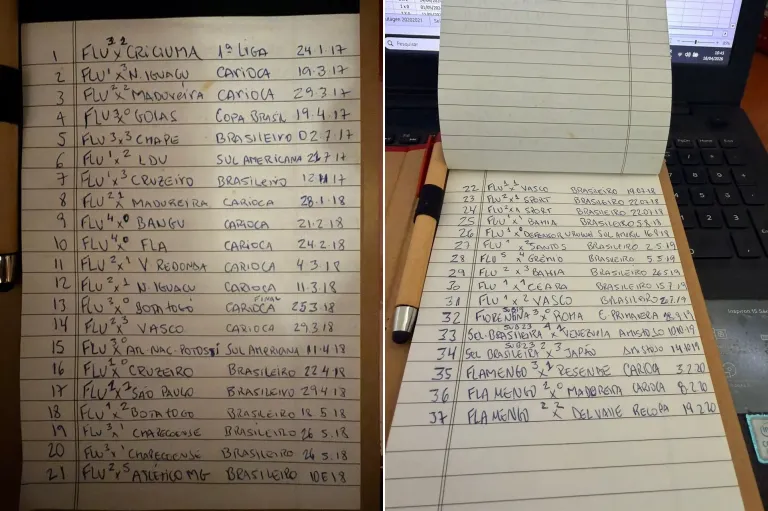 1 FLU 3x2 CRICIUMA 1ª LIGA 24.1.17
2 FLU 1x3 N. IGUAÇU CARIOCA 19.3.17
3 FLU 2x2 MADUREIRA CARIOCA 29.3.17
4 FLU 3x0 GOIAS COPA BRASIL 19.4.17
5 FLU 3x3 CHAPE BRASILEIRO 02.7.17
6 FLU 1x2 LDU SULAMERICANA 7.17
7 FLU 1x3 CRUZEIRO BRASILEIRO 12.11.17
8 FLU 2x1 MADUREIRA CARIOCA 28.1.18
9 FLU 4x0 BANGU CARIOCA 21.2.18
10 FLU 4x0 FLA CARIOCA 24.2.18
11 FLU 2x1 V. REDONDA CARIOCA 4.3.18
12 FLU 2x1 N. IGUAÇU CARIOCA 11.3.18
13 FLU 3x0 BOTAFOGO CARIOCA FINAL 25.3.18
14 FLU 2x3 VASCO CARIOCA 29.3.18
15 FLU 3x0 ATL. NAC. POTOSÍ SULAMERIANA 11.4.18
16 FLU 1x0 CRUZEIRO BRASILEIRO 22.4.18
17 FLU 1x1 SÃO PAULO BRASILEIRO 29.4.18
18 FLU 1x2 BOTAFOGO BRASILEIRO 18.5.18
19 FLU 3x1 CHAPECOENSE BRASILEIRO 26.5.18
20 FLU 3x1 CHAPECOENSE BRASILEIRO 26.5.18
21 FLU 2x5 ATLÉTICO MG BRASILEIRO
Pesquisar
22 FLU 1x1 VASCO BRASILEIRO 19.07.18
23 FLU 2x1 SPORT BRASILEIRO 22.07.18
24 FLU 2x1 SPORT BRASILEIRO 22.07.18
25 FLU 1x1 BAHIA BRASILEIRO 5.8.18
26 FLU DEFENSOR SUL AMERIC 16.8.18
27 FLU SANTOS BRASILEIRO 2.5.19
28 FLU 5x4 GRÊMIO BRASILEIRO 5.5.19
29 FLU 2x3 BAHIA BRASILEIRO 26.5.19
30 FLU 1x1 CEARA BRASILEIRO 15.7.19
31 FLU 1x2 VASCO BRASILEIRO 7.19
32 FIORENTINA SUB19 3x0 ROMA E. PRIMAVERA 9.19
33 SEL. BRASILEIRA SUB23 4x1 VENEZUELA AMISTOSO 10.10.19
34 SEL BRASILEIRA SUB23 2x3 JAPÃO AMISTOSO 14.10.19
35 FLAMENGO 3x1 RESENDE CARIOCA 3.2.20
36 FLAMENGO 2x0 MADUREIRA CARIOCA 8.2.20
37 FLAMENGO 2x2 DEL VALLE RECOPA 19.2.20